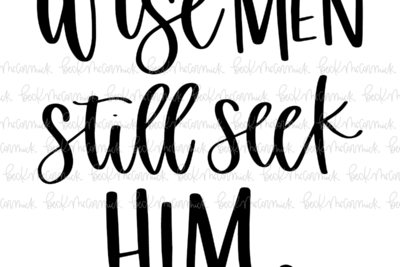 wise MEN
still seek
HIM.